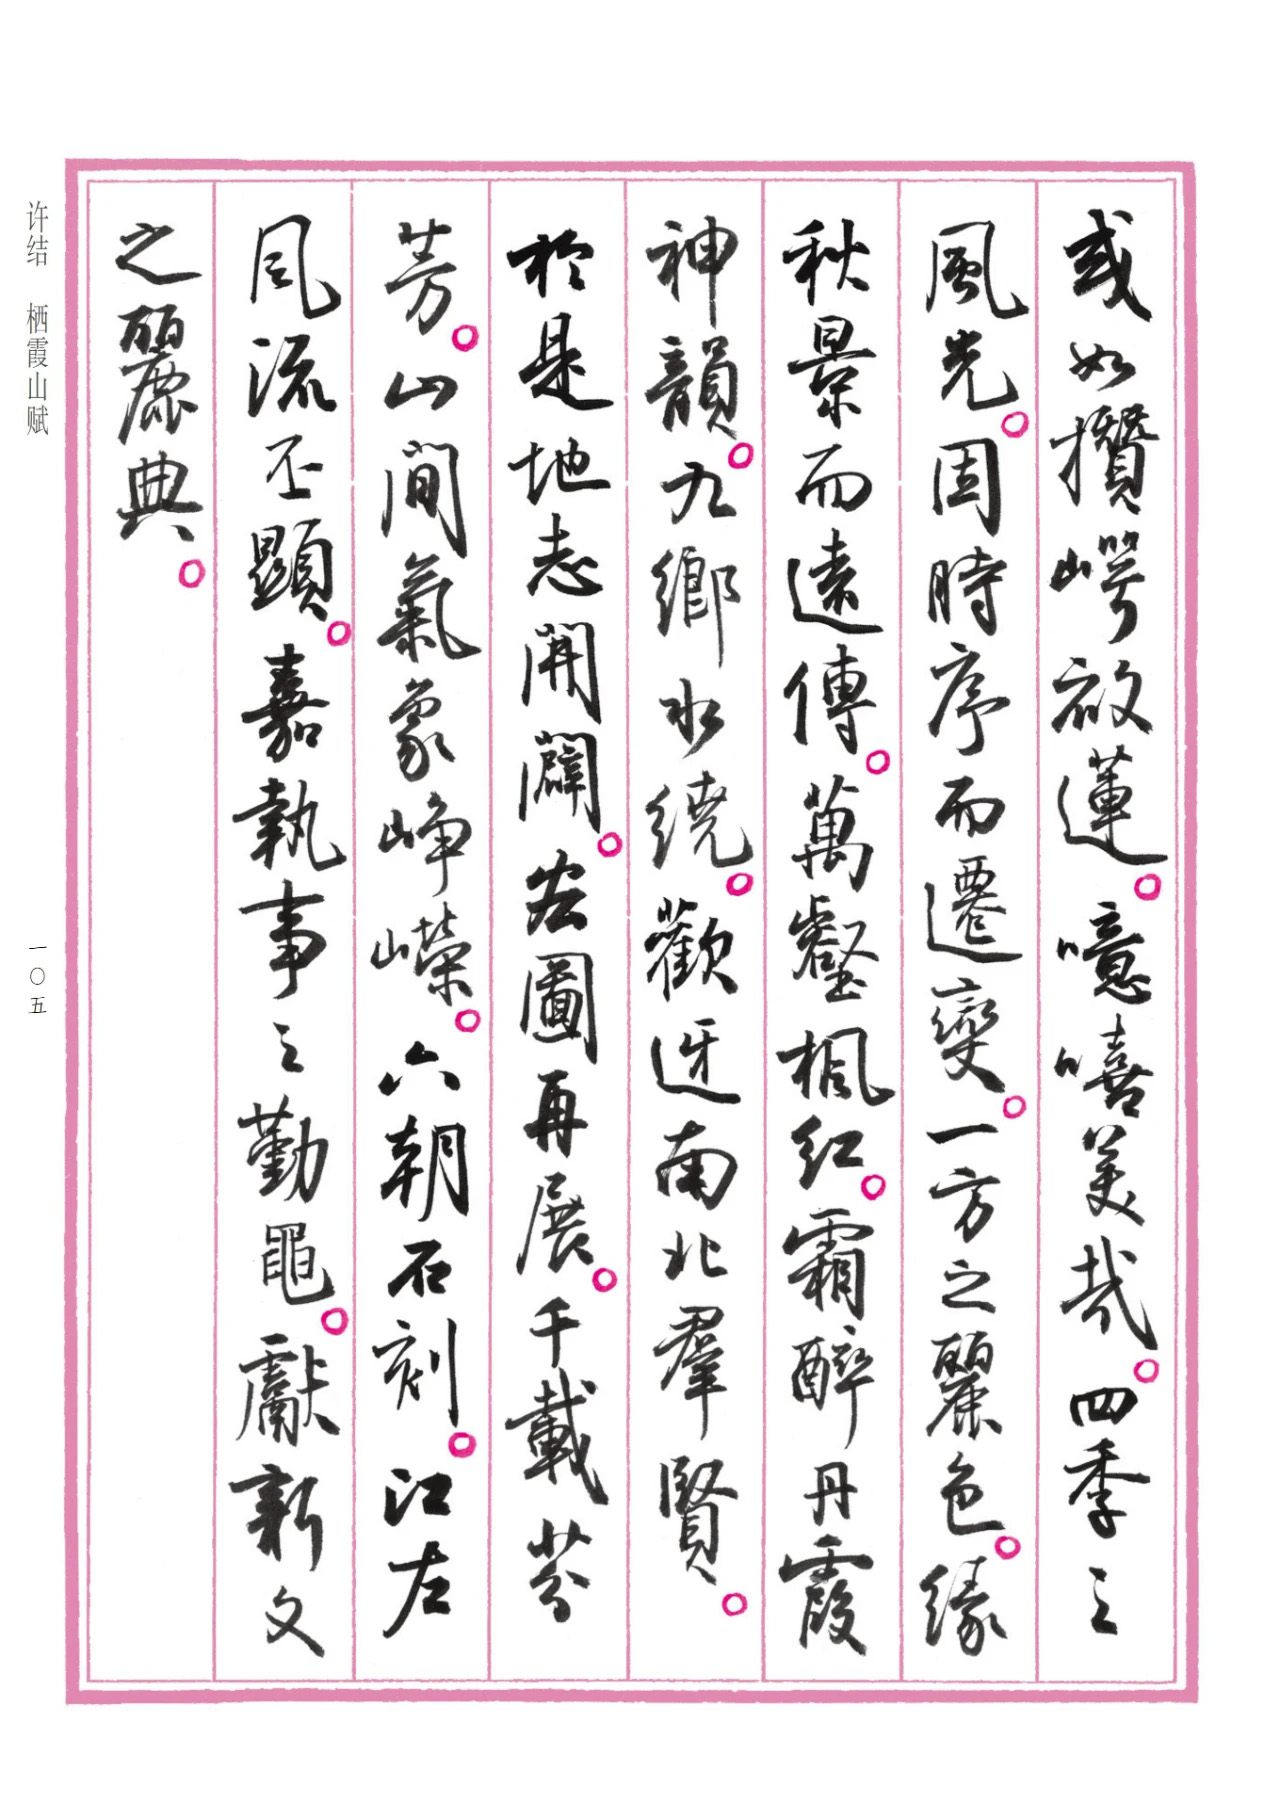 或如攢崿放蓮。噫嘻美哉。四季之
風光。固時序而遷變。一方之麗色。緣
秋景而遠傳。萬壑楓紅。霜醉丹霞
神韻。九鄉水繞。歡迓南北羣賢。
於是地志開闢。宏圖再展。千載芬
芳。山間氣象崢嶸。六朝石刻。江左
風流丕顯。嘉執事之勤黽。獻新文
之麗典。
许结 栖霞山赋
一〇五